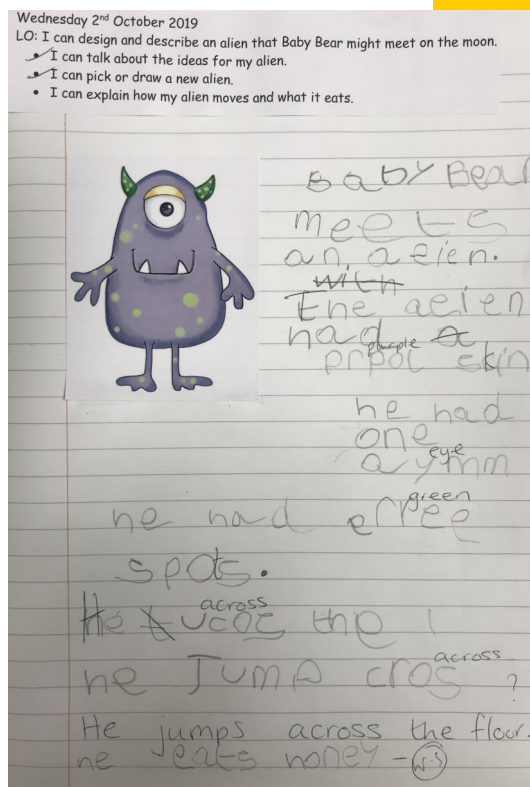 Wednesday 2nd October 2019
LO: I can design and describe an alien that Baby Bear might meet on the moon.
I can talk about the ideas for my alien.
I can pick or draw a new alien.
• I can explain how my alien moves and what it eats.
BaBY Bear
meets
an aeien.
with
The aelien
had a
purple
prpol skin
he had
one
eye
a ymm
green
he had erree
spots.
across
He the
across
he Jump cros ?
He jumps across the floor.
he eats honey - W.S